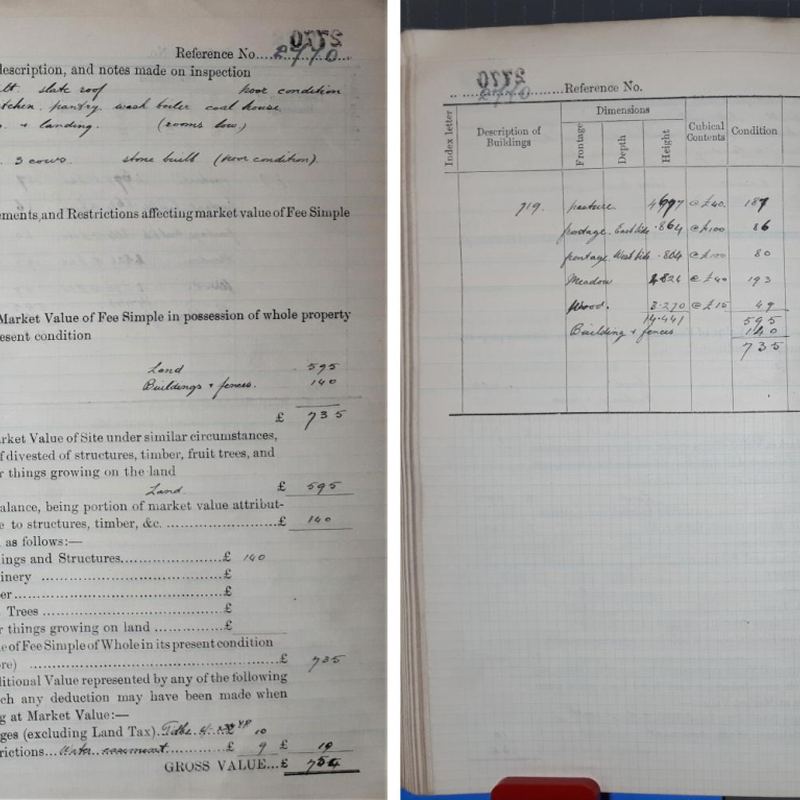 2770
Reference No. 2770
description, and notes made on inspection
lt. slate roof poor condition
tchen. pantry. wash boiler coal house.
s. + landing. (rooms low.)
. 3 cows. stone built (poor condition).
ements, and Restrictions affecting market value of Fee Simple
Market Value of Fee Simple in possession of whole property
esent condition
Land 595
Buildings + fences. 140
£ 735
rket Value of Site under similar circumstances,
f divested of structures, timber, fruit trees, and
r things growing on the land
Land. £ 595
alance, being portion of market value attribut-
e to structures, timber, &c. £ 140
as follows:—
ings and Structures £ 140
inery £
er £
Trees £
r things growing on land £
e of Fee Simple of Whole in its present condition
re) £ 735
ditional Value represented by any of the following
ch any deduction may have been made when
g at Market Value:—
ges (excluding Land Tax). Tithe 10
rictions... Water easement. £ 9 £ 19
GROSS VALUE...£ 754
2770
2770 Reference No.
Index letter
Description of Buildings
Dimensions
Frontage
Depth
Height
Cubical Contents
Condition
719. pasture 4697 @ £40. 187
portage. East side .864 @ £100 86
portage. West side .804 @ £100 80
Meadow 4.826 @ £40 193
Wood. 3.270 @ £15 49
14.441 595
Building + fences 140
735